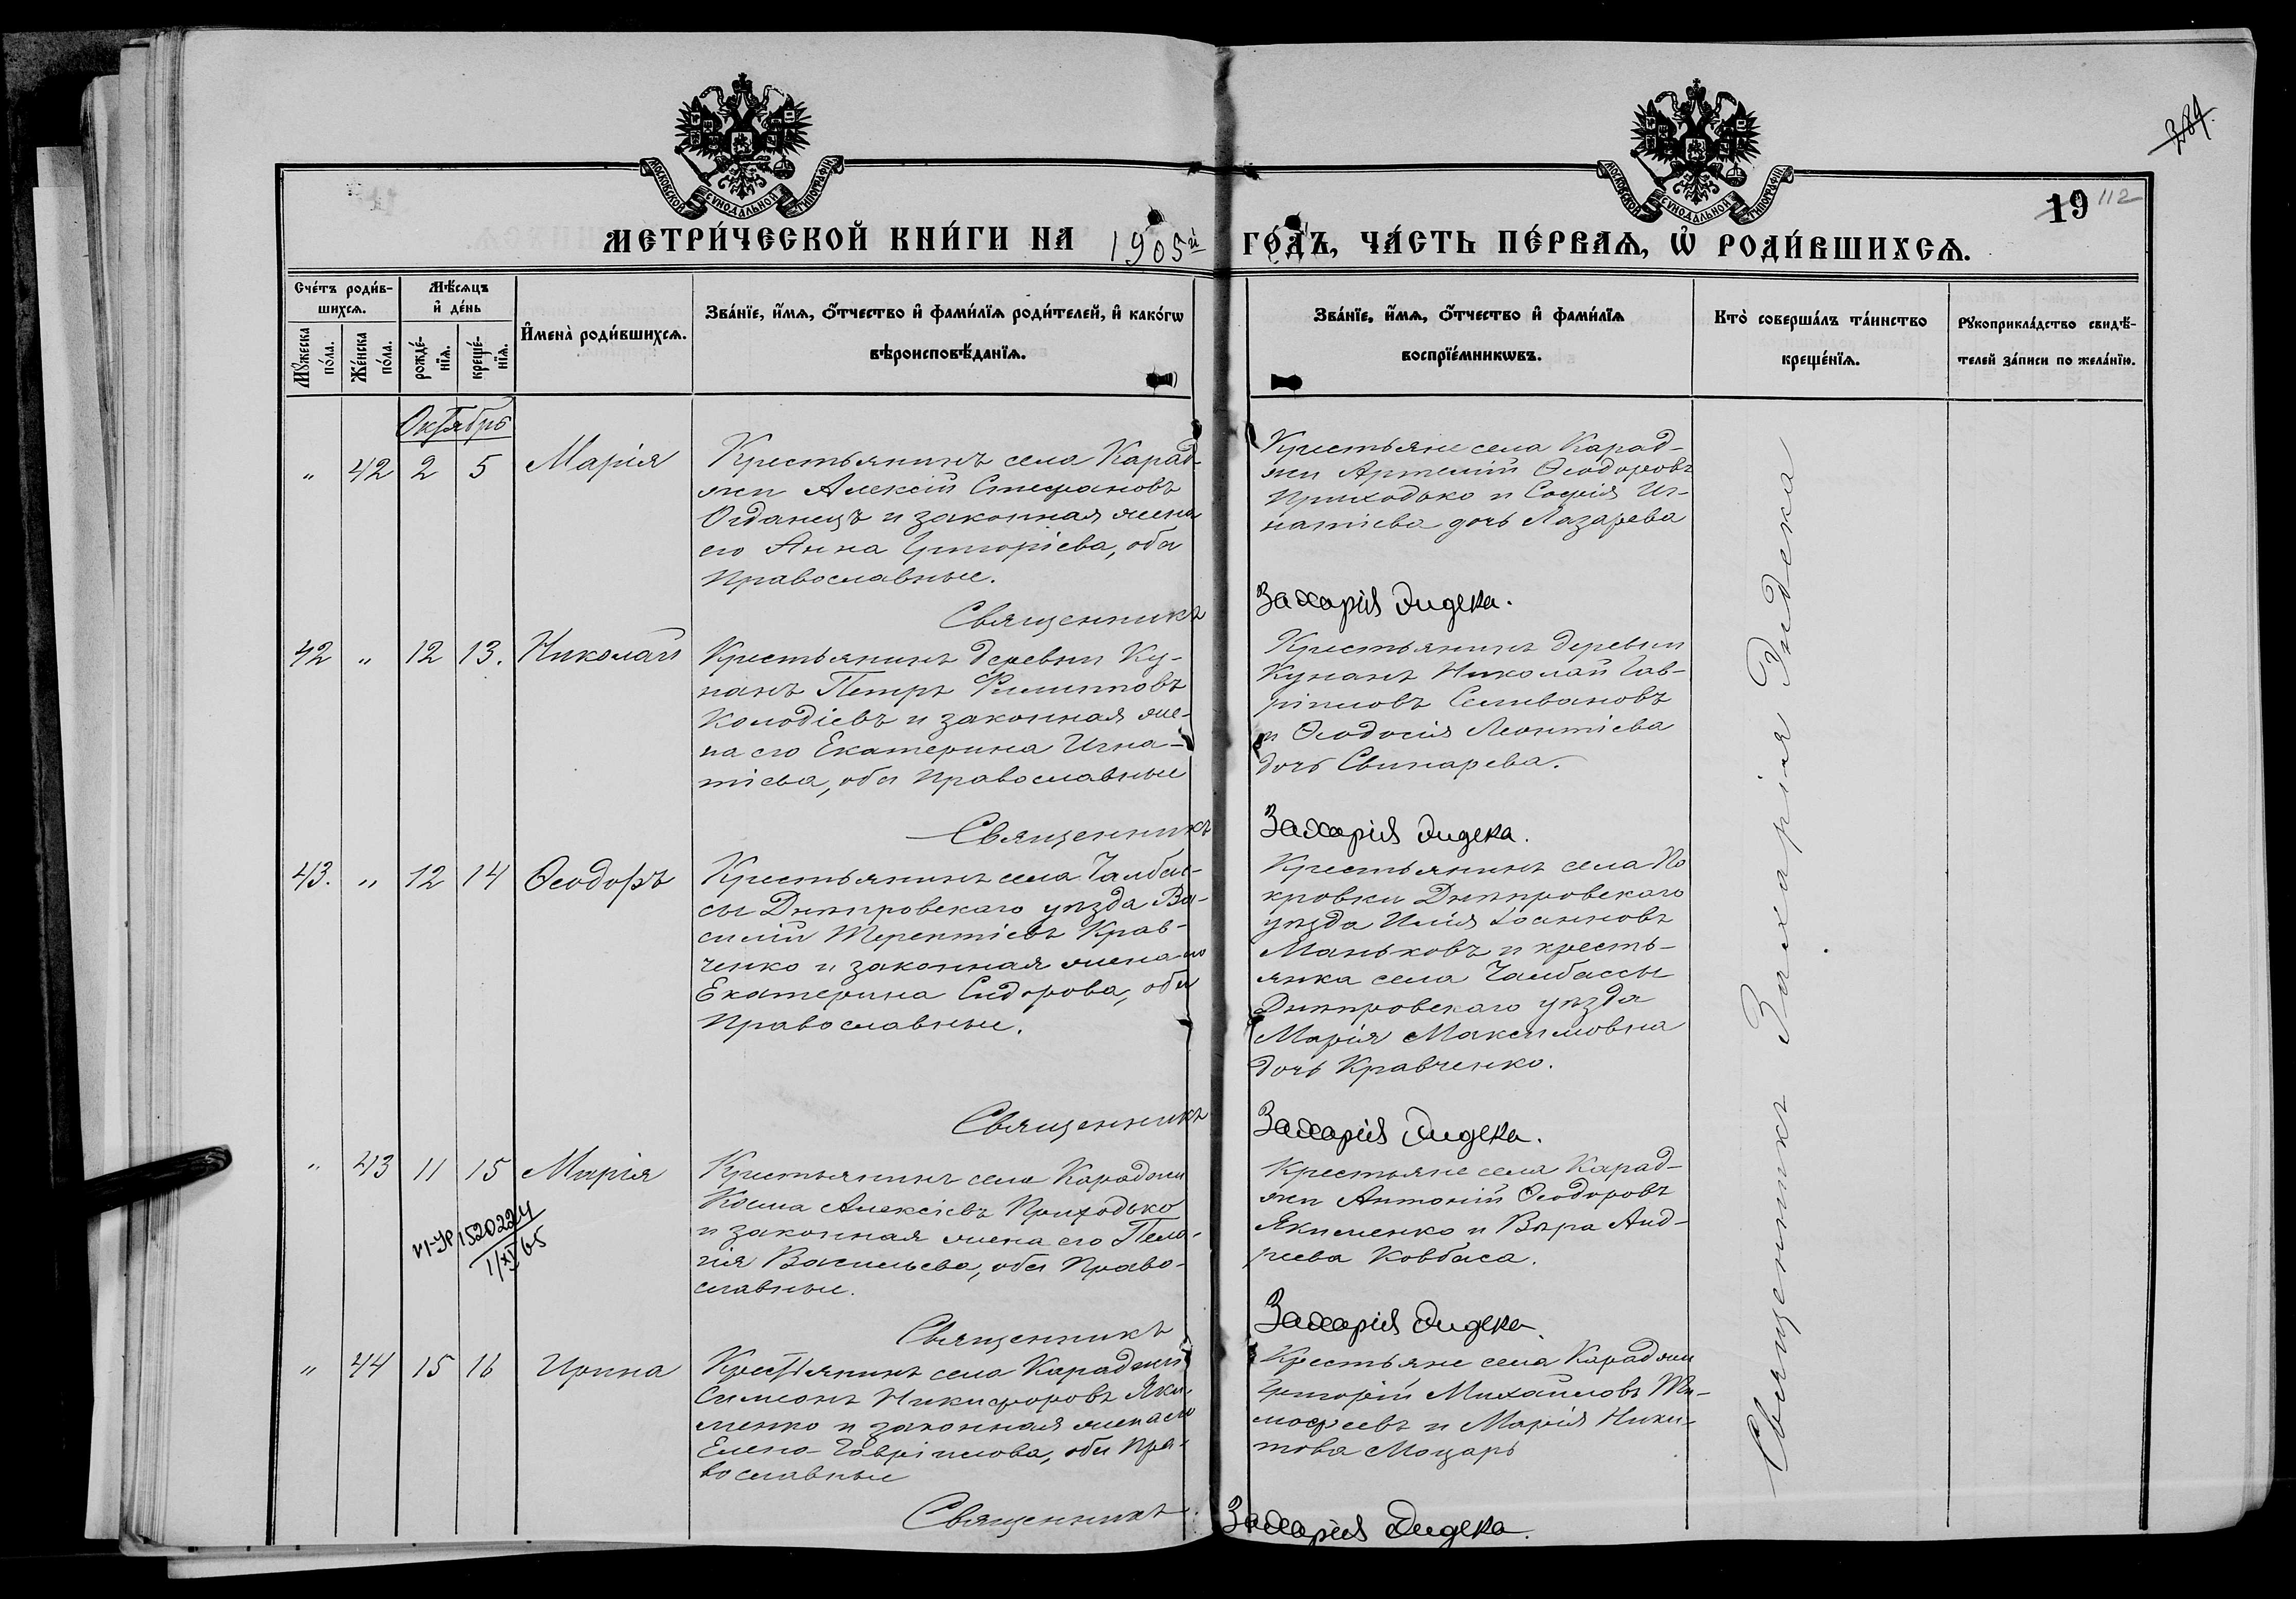 284.
19 112
МОСКОВСКОЙ СѴНОДАЛЬНОЙ ТИПОГРАФІИ
МОСКОВСКОЙ СѴНОДАЛЬНОЙ ТИПОГРАФІИ
МЕТРИ́ЧЕСКОЙ КНИ́ГИ НА 1905й ГО́ДЪ, ЧА́СТЬ ПЕ́РВАѦ, Ѡ҆ РОДИ́ВШИХСѦ.
Сче́тъ роди́в-
шихсѧ.
Мꙋ́жеска по́ла.
Же́нска по́ла.
Мѣ́сѧцъ
и҆ де́нь
рожде́-
нїѧ.
креще́-
нїѧ.
И҆мена̀ роди́вшихсѧ.
Зва́нїе, и҆́мѧ, ѻ҆́тчество и҆ фами́лїѧ роди́телей, и҆ како́гѡ
вѣроисповѣ́данїѧ.
Зва́нїе, и҆́мѧ, ѻ҆́тчество и҆ фами́лїѧ
воспрїе́мникѡвъ.
Кто̀ соверша́лъ та́инство
креще́нїѧ.
Рꙋкоприкла́дство свидѣ́-
телей за́писи по жела́нїю.
Октябрь
" 42 2 5 Марія
Крестьянинъ села Карад-
жи Алексій Стефановъ
Огданецъ и законная жена
его Анна Григоріева, оба
православные.
Священникъ
Крестьяне села Карад-
жи Артемій Ѳеодоровъ
Приходько и Софія Иг-
натіева дочь Лазарева
Захарія Дидека.
42 " 12 13. Николай
Крестьянинъ деревни Ку-
нанъ Петръ Филипповъ
Колодіевъ и законная же-
на его Екатерина Игна-
тіева, оба православные
Священникъ
Крестьянинъ деревни
Кунанъ Николай Гав-
ріиловъ Селивановъ
и Ѳеодосія Леонтіева
дочь Свинарева.
Захарія Дидека.
43. " 12 14 Ѳеодоръ
Крестьянинъ села Чалбас-
сы Днѣпровскаго уѣзда Ва-
силій Терентіевъ Крав-
ченко и законная жена его
Екатерина Сидорова, оба
православные.
Священникъ
Крестьянинъ села По
кровки Днѣпровскаго
уѣзда Илія Іоанновъ
Маньковъ и кресть-
янка села Чалбассы
Днѣпровскаго уѣзда
Марія Максимовна
дочь Кравченко.
Захарія Дидека.
" 43 11 15 Марія
1520224
1/XI 65
Крестьянинъ села Караджи
Косма Алексіевъ Приходько
и законная жена его Пела-
гія Васильева, оба право-
славные.
Священникъ
Крестьяне села Карад-
жи Антоній Ѳеодоровъ
Якименко и Вѣра Анд-
реева Ковбаса.
Захарія Дидека.
" 44 15 16 Ирина
Крестьянинъ села Караджи
Симеонъ Никифоровъ Яки-
менко и законная жена его
Елена Гавріилова, оба пра-
вославные
Священникъ
Крестьяне села Караджи
Григорій Михайловъ Ти-
мофеевъ и Марія Ники-
това Моцарь
Захарія Дидека.
Священникъ Захарія Дидека